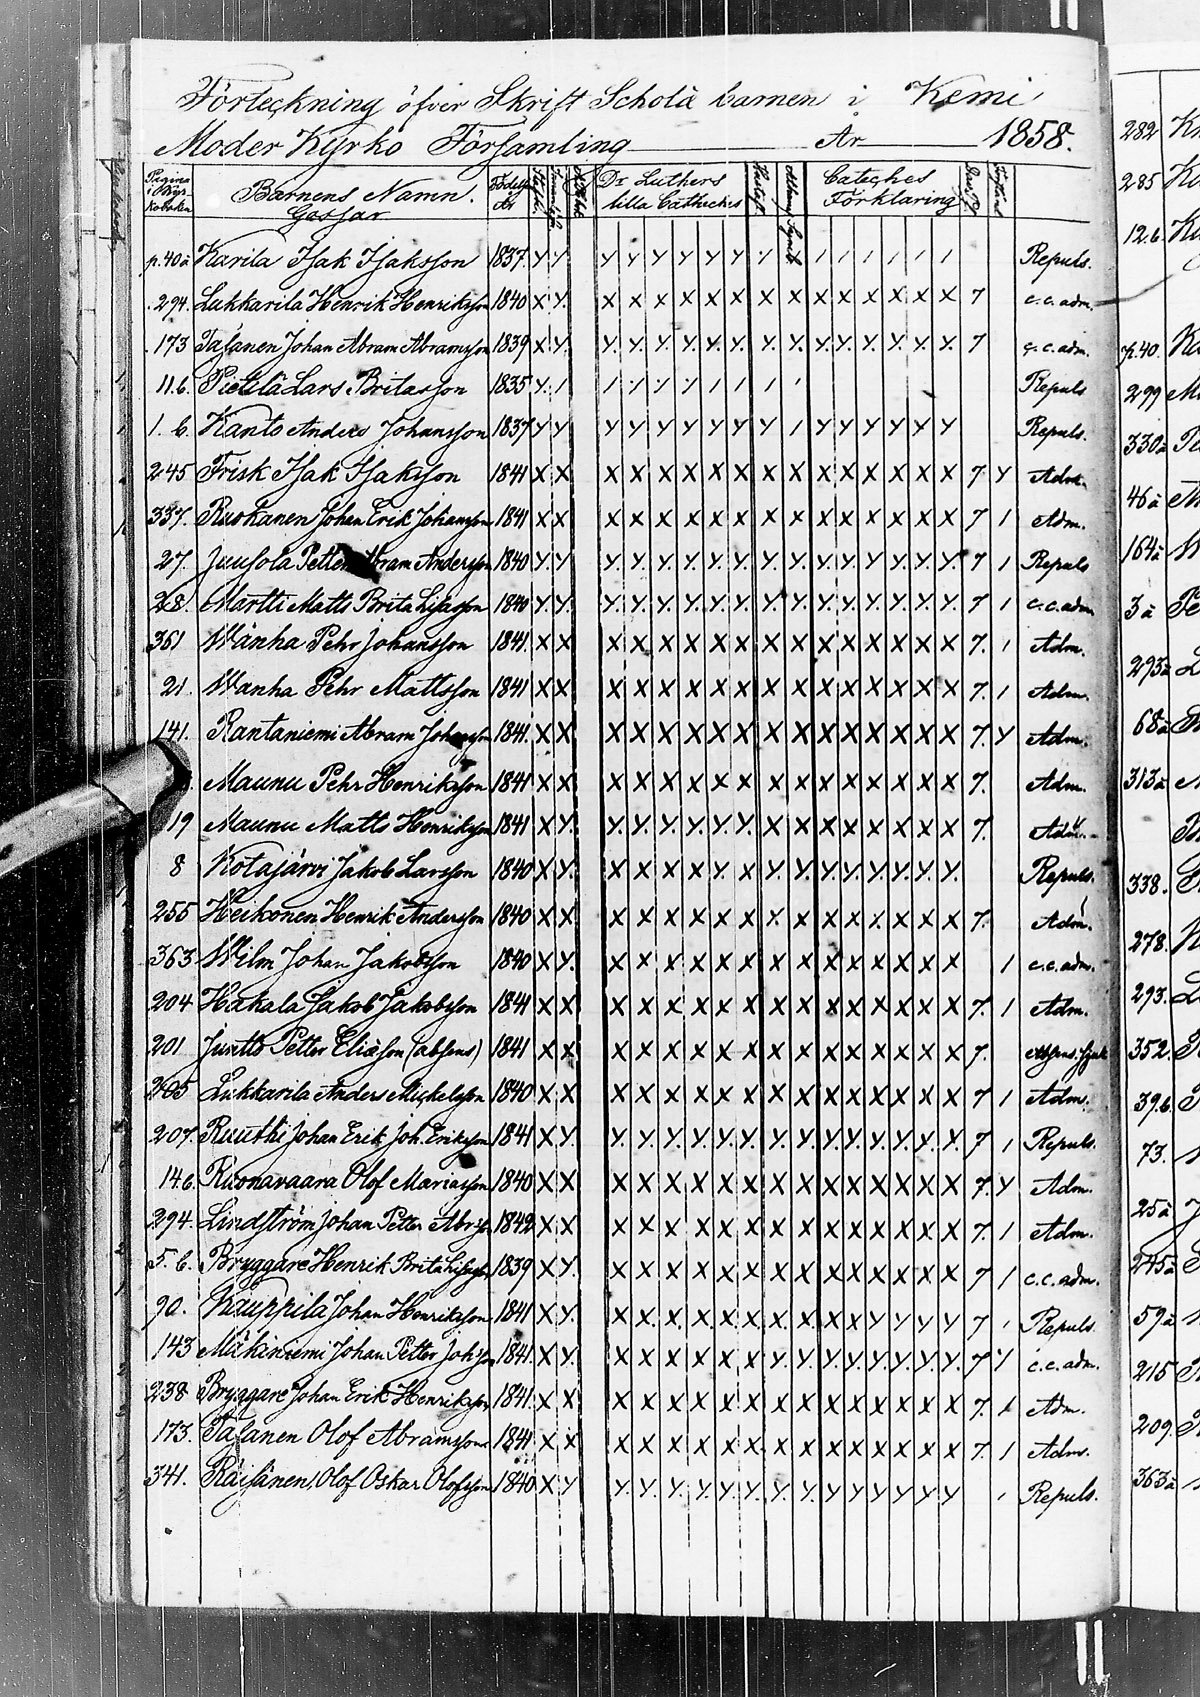 Förteckning öfver Skrift Schola barnen i Kemi
Moder Kyrko Församling År 1858.
Pagina i Kyrkoboken Barnens Namn. Gossar Födelse År Dr Luthers lilla Cateches Hustafl Cateches Förklaring
p.40 a Karila Isak Isaksson 1837 Y Y Y Y Y Y Y Y Repuls.
294. Lukkarila Henrik Henriksson 1840 X Y. X X X X X X X X X X X X X X 7 c.c. adm.
173 Tasanen Johan Abram Abramsson 1839 X Y. Y. Y. Y. Y. Y. Y. Y. Y. Y. Y. Y. Y. Y. X 7 c.c. adm.
11.6. Pietilä Lars Britasson 1835 Y. / Repuls
1. 6. Kanto Anders Johansson 1837 Y Y Y Y Y Y Y Y Y / Y Y Y Y Y Y Repuls.
245 Frisk Isak Isaksson 1841 X X X X X X X X X X X X X X X X 7. Y Adm.
337. Ruokanen Johan Erik Johansson 1841 X X X X X X X X X X X X X X X X 7 / Adm.
27. Juusola Petter Abram Andersson 1840 Y. Y Y. Y. Y. Y. Y. Y. Y. Y. Y. Y. Y. Y. Y. Y. 7 / Repuls
28. Martti Matts Brita Lisasson 1840 Y. Y. Y. Y. Y. Y. Y. Y. Y. Y. Y. Y. Y. Y. Y. Y. 7 / c.c. adm
361 Wänha Pehr Johansson 1841. X X X X X X X X X X X X X X X X 7. / Adm.
21. Wanha Pehr Mattsson 1841 X X X X X X X X X X X X X X X X 7. / Adm.
141. Rantaniemi Abram Johansson 1841. X X X X X X X X X X X X X X X X 7. Y Adm.
Maunu Pehr Henriksson 1841 X X X X X X X X X X X X X X X X 7. Adm.
19 Maunu Matts Henriksson 1841 X Y. Y. Y. Y. Y. Y. Y. X X X X X X X X 7. Adm.
8 Kotajärvi Jakob Larsson 1840 X Y. X X X X Y X Y. Y. Y. Y. Y. Y. Y. Y. Repuls.
255 Heikonen Henrik Andersson 1840 X X X X X X X X X X X X X X X X 7. Adm.
363 Wilm Johan Jakobsson 1840 X Y. X X X X X X X X X X X X X X / c.c. adm.
204 Hakala Jakob Jakobsson 1841 X X X X X X X X X X X X X X X X 7. / Adm.
201 Juntto Petter Eliæson (absens) 1841 X X X X X X X X X X X X X X X X 7.
205 Lukkarila Anders Mickelsson 1840 X X X X X X X X X X X X X X X X 7 / Adm.
207. Ruuthi Johan Erik Joh. Eriksson 1841 X Y. Y. Y. Y. Y. Y. Y. Y. Y. Y. Y. Y. Y. Y. Y. 7 / Repuls.
146. Ruonavaara Olof Mariasson 1840 X X X X X X X X X X X X X X X X 7. Y Adm.
294. Lindström Johan Petter Abr:s 1842 X X X X X X X X X X X X X X X X 7. / Adm.
5. 6. Bryggare Henrik Brita Lisasson 1839 X Y. X X X X X X X X X X X X X X 7 / c.c. adm.
90. Kauppila Johan Henriksson 1841 X Y. X X X X X X X X X X Y Y Y Y 7 / Repuls.
143 Mäkiniemi Johan Petter Joh:s 1841. X Y. X X X X X X Y. Y. Y. Y. Y. Y. Y. Y. 7 Y c.c. adm.
238 Bryggare Johan Erik Henriksson 1841. X X X X X X X X X X X X X X X X 7. / Adm.
173. Tasanen Olof Abramsson 1841 X X X X X X X X X X X X X X X X 7. / Adm.
341. Räisänen, Olof Oskar Olofsson 1840 X Y Y. Y. Y. Y. Y. Y. Y. Y. Y Y Y Y Y Y / Repuls.
282
285
126.
p.40.
299
330 a
46 a
164 a
3 a
293 a
68 a
313 a
338.
278.
293.
352.
396.
73.
25 a
245 a
59 a
215
209.
363 a